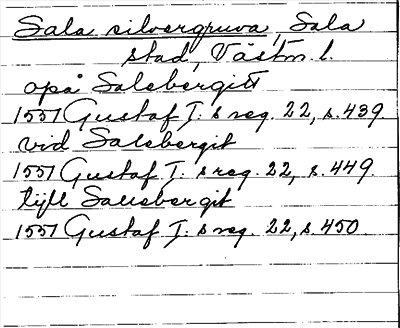 Sala silvergruva, Sala
stad, Västm. l.
opå Salebergitt
1551 Gustaf I:s reg. 22, s. 439.
vid Salebergit
1551 Gustaf I:s reg. 22, s. 449.
till Salesbergit
1551 Gustaf I:s reg. 22, s. 450.